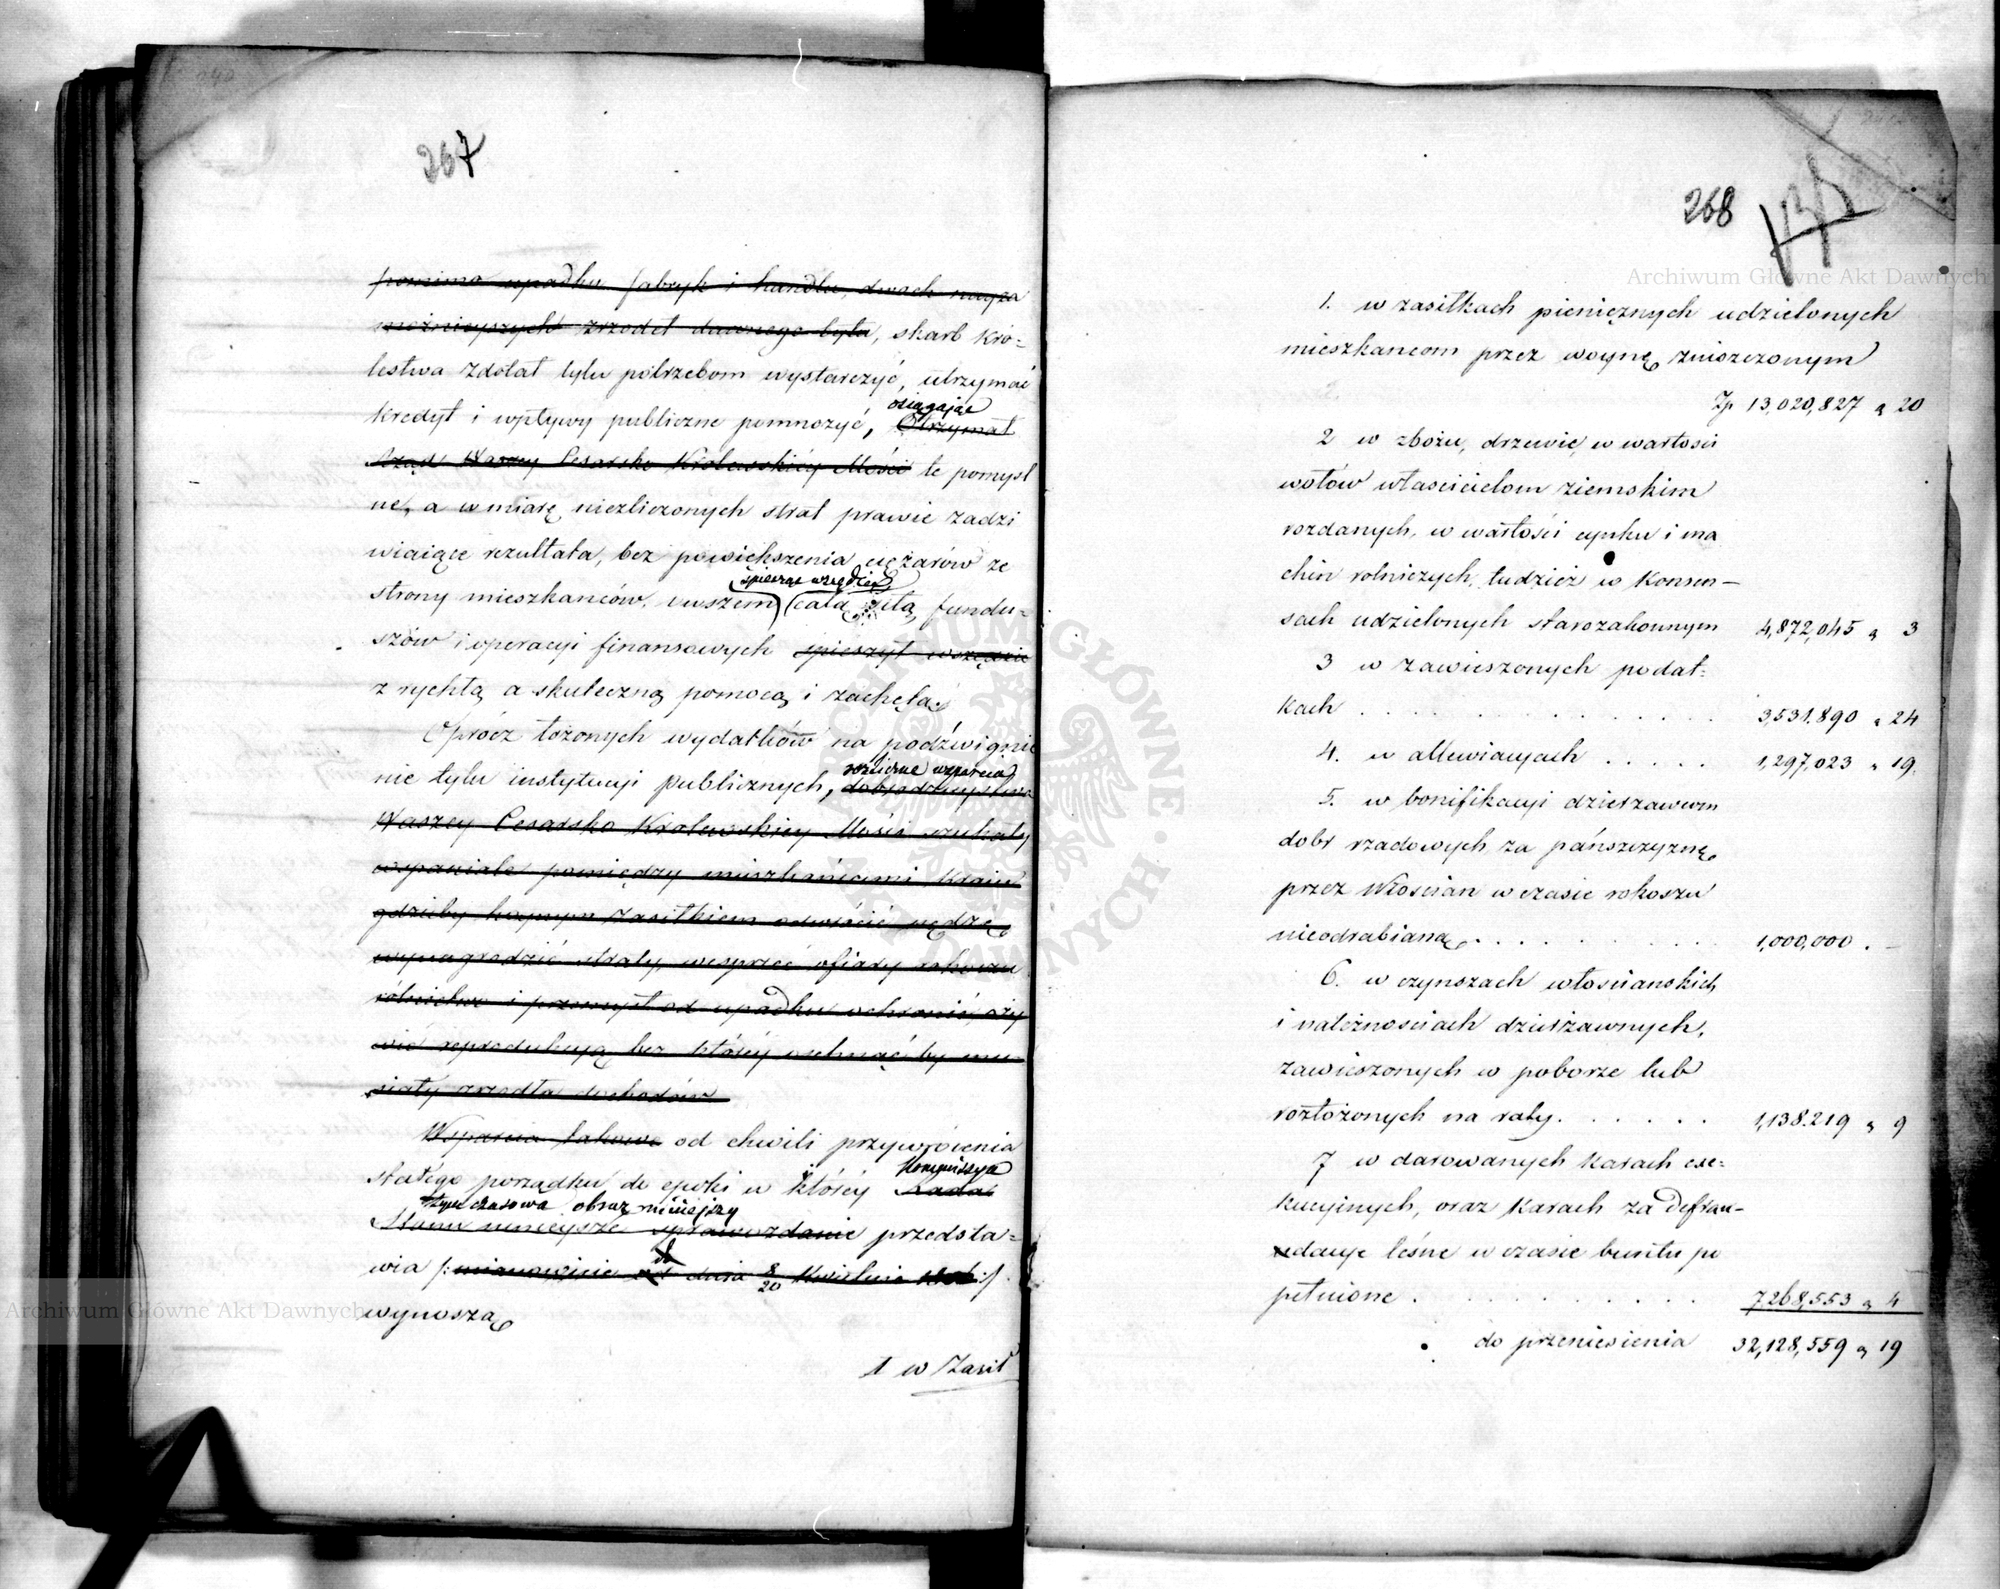 267
pomimo upadku fabryk i handlu, dwóch nayza
możnieyszych zrzódeł dawnego bytu, skarb Kró-
lestwa zdołał tylu potrzebom wystarczyć, utrzymać
kredyt i wpływy publiczne pomnożyć, osiągaiąc Otrzymał
Rząd Waszey Cesarsko Królewskiéy Mości te pomyśl
ne, a w miarę niezliczonych strat prawie zadzi
wiaiące rezultata, bez powiększenia ciężarów ze
strony mieszkańców, spiesząc wszędzie całą siłą fundu-
szów i operacyi finansowych spieszył wszędzie
z rychłą a skuteczną pomocą i zachętą.
Oprócz łożonych wydatków na podźwignie
nie tylu instytucyi publicznych, rozliczne wsparcia dobrodzieystwa
Waszey Cesarsko Królewskiey Mości szukały
wspaniale pomiędzy mieszkańcami Kraiu
gdzieby hoynym zasiłkiem odwrócić nędzę
wynagrodzić straty, wesprzeć ofiary rokoszu
rólnictwo i przemysł od upadku ochronić, oży
wić reprodukcyą bez któréy uschnąć by mu
siały zrzódła dochodów
Wsparcia takowe od chwili przywrócenia
stałego porządku do epoki w któréy Kommissya Rada
tymczasowa obraz ninieiszy
Stanu ninieysze sprawozdanie przedsta-
wia /: mianowicie od dnia 8/20 Kwietnia :/
wynoszą
1 w Zasił
268
1. w zasiłkach pienięznych udzielonych
mieszkancom przez woynę zniszczonym
Zp 13,020,827 „ 20
2 w zbożu, drzewie, w wartosci
wołów właścicielom ziemskim
rozdanych, w wartości cynku i ma
chin rolniczych, tudzież w Konsen-
sach udzielonych starozakonnym 4,872,045 „ 3
3 w zawieszonych podat-
kach . . . . . 3,531,890 „ 24
4. w allewiacyach . . . . . 1,297,023 „ 19.
5. w bonifikacyi dzierzawcom
dobr rzadowych za pańszczyznę
przez Włościan w czasie rokoszu
nieodrabianą . . . . . 1,000,000 . –
6. w czynszach włosciańskich
i należnosciach dzierżawnych,
zawieszonych w poborze lub
rozłożonych na raty . . . . . 1,138,219 „ 9
7 w darowanych karach exe-
kucyinych, oraz karach za defrau-
dacye leśne w czasie buntu po
pełnione . . . . . 7,268,553 „ 4
do przeniesienia 32,128,559 „ 19
Archiwum Główne Akt Dawnych
Archiwum Główne Akt Dawnych
ARCHIWUM GŁÓWNE AKT DAWNYCH